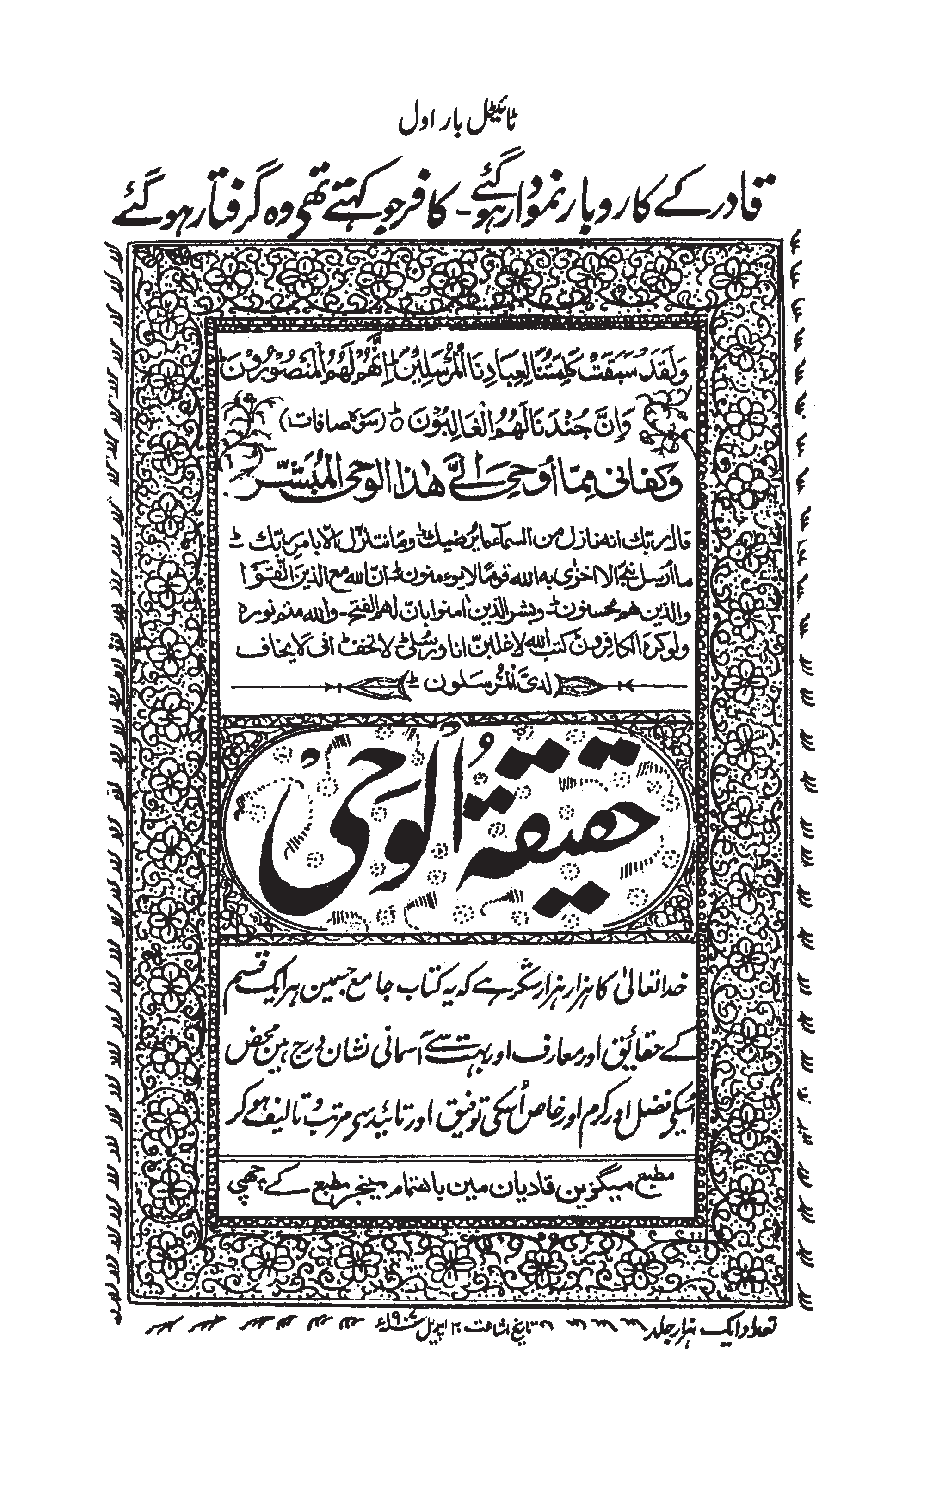 ٹائیٹل بار اول
قادر کے کاروبار نمودار ہو گئے۔ کافر جو کہتے تھے وہ گرفتار ہو گئے
وَلَقَدْ سَبَقَتْ كَلِمَتُنَا لِعِبَادِنَا الْمُرْسَلِيْنَ ؕ اِنَّهُمْ لَهُمُ الْمَنْصُوْرُوْنَ ؕ
وَاِنَّ جُنْدَنَا لَهُمُ الْغَالِبُوْنَ ؕ ○ (سورۃ صافات)
وكفانى مِمّا أُوحِىَ الَىَّ هٰذا الوحى المُبشّر
قال ربك انه نازل من السماء ما يرضيك ؕ وما نتنزل الا بامر ربك ؕ
ما ارسل نبى الا اخزى به الله قوما لا يؤمنون ؕ ان الله مع الذين اتقوا
والذين هم محسنون ؕ وبشر الذين امنوا بان لهم الفتح۔ والله متم نوره
ولو كره الكافرون كتب الله لاغلبن انا ورسلى ؕ لا تخف انى لا يخاف
لدى المرسلون ؕ
حقیقۃ الوحی
خدا تعالیٰ کا ہزار ہزار شکر ہے کہ یہ کتاب جامع جسمین ہر ایک قسم
کے حقائق اور معارف اور بہت سے آسمانی نشان درج ہین محض
اسکی فضل اور کرم اور خاص اُسکی توفیق اور تائید سی مرتب و تالیف ہو کر
مطبع میگزین قادیان مین باہتمام مینجر مطبع کے چھپی
تعداد ایک ہزار جلد تاریخ اشاعت ۲۰ اپریل ۱۹۰۷ء